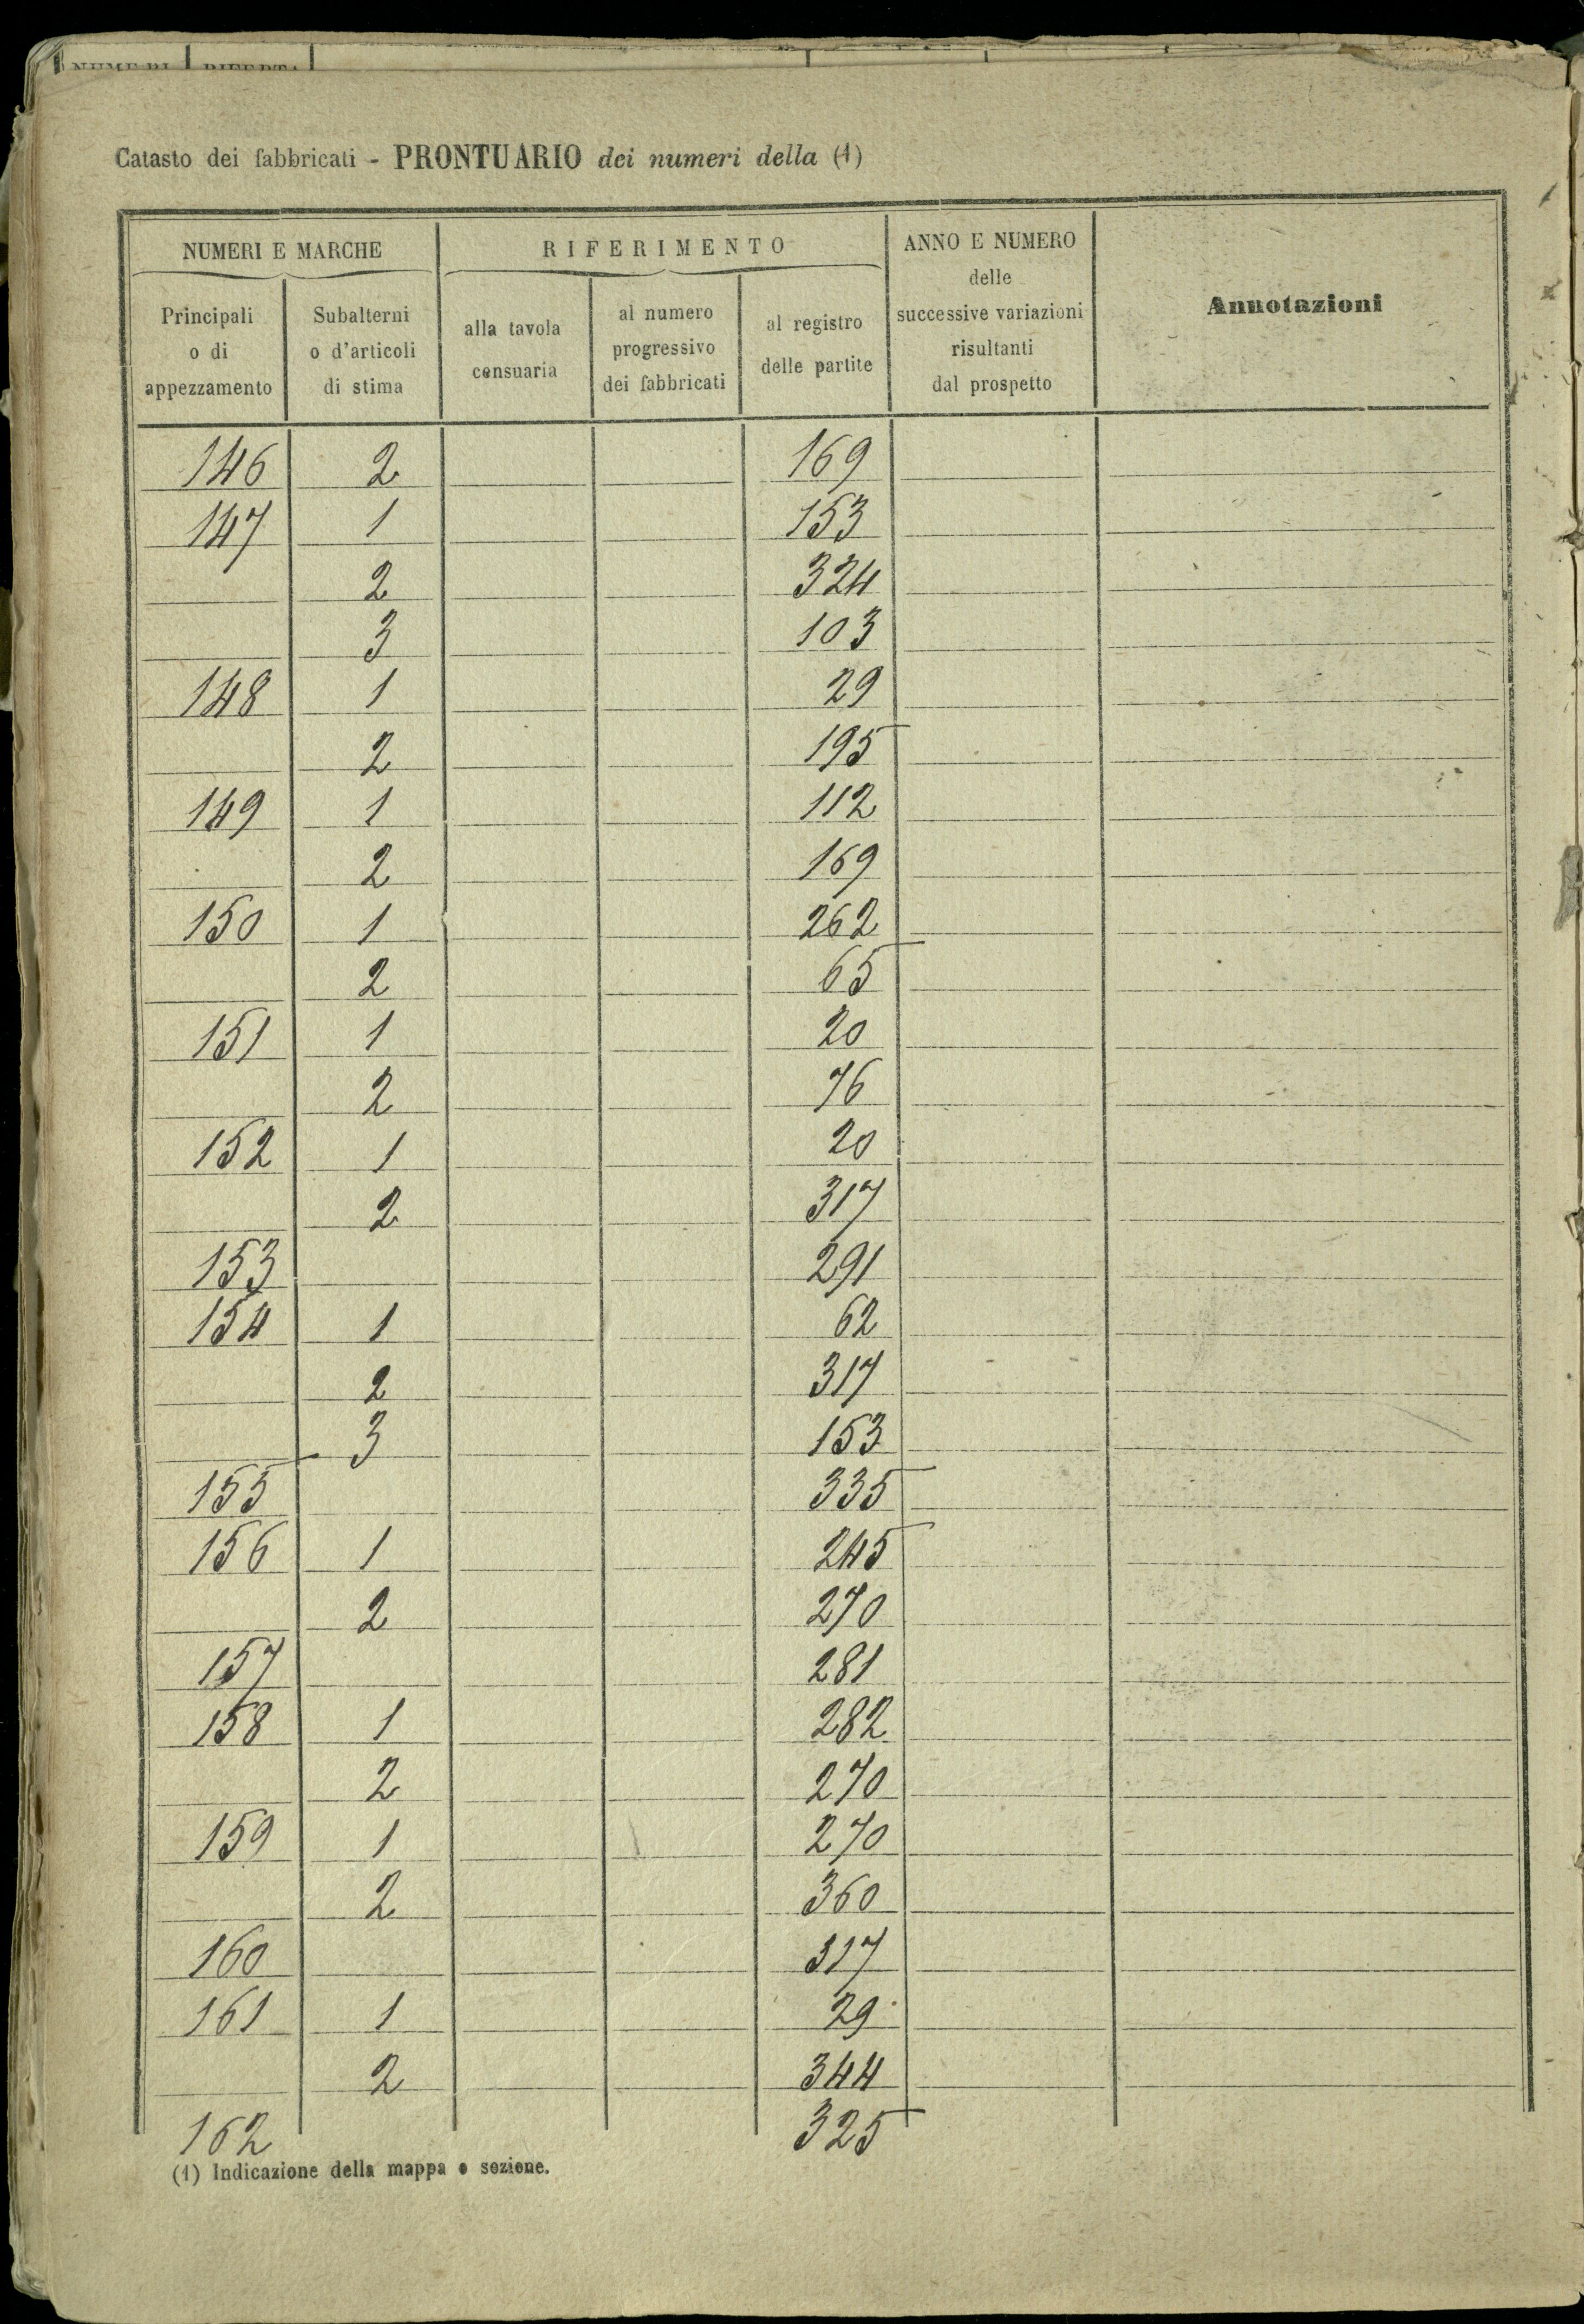 Catasto dei fabbricati - PRONTUARIO dei numeri della (1)
NUMERI E MARCHE RIFERIMENTO ANNO E NUMERO delle successive variazioni risultanti dal prospetto Annotazioni
Principali o di appezzamento Subalterni o d'articoli di stima alla tavola censuaria al numero progressivo dei fabbricati al registro delle partite
146 2 169
147 1 153
2 324
3 103
148 1 29
2 195
149 1 112
2 169
150 1 262
2 65
151 1 20
2 76
152 1 20
2 317
153 291
154 1 62
2 317
3 153
155 335
156 1 245
2 270
157 281
158 1 282
2 270
159 1 270
2 360
160 317
161 1 29
2 344
162 325
(1) Indicazione della mappa o sezione.